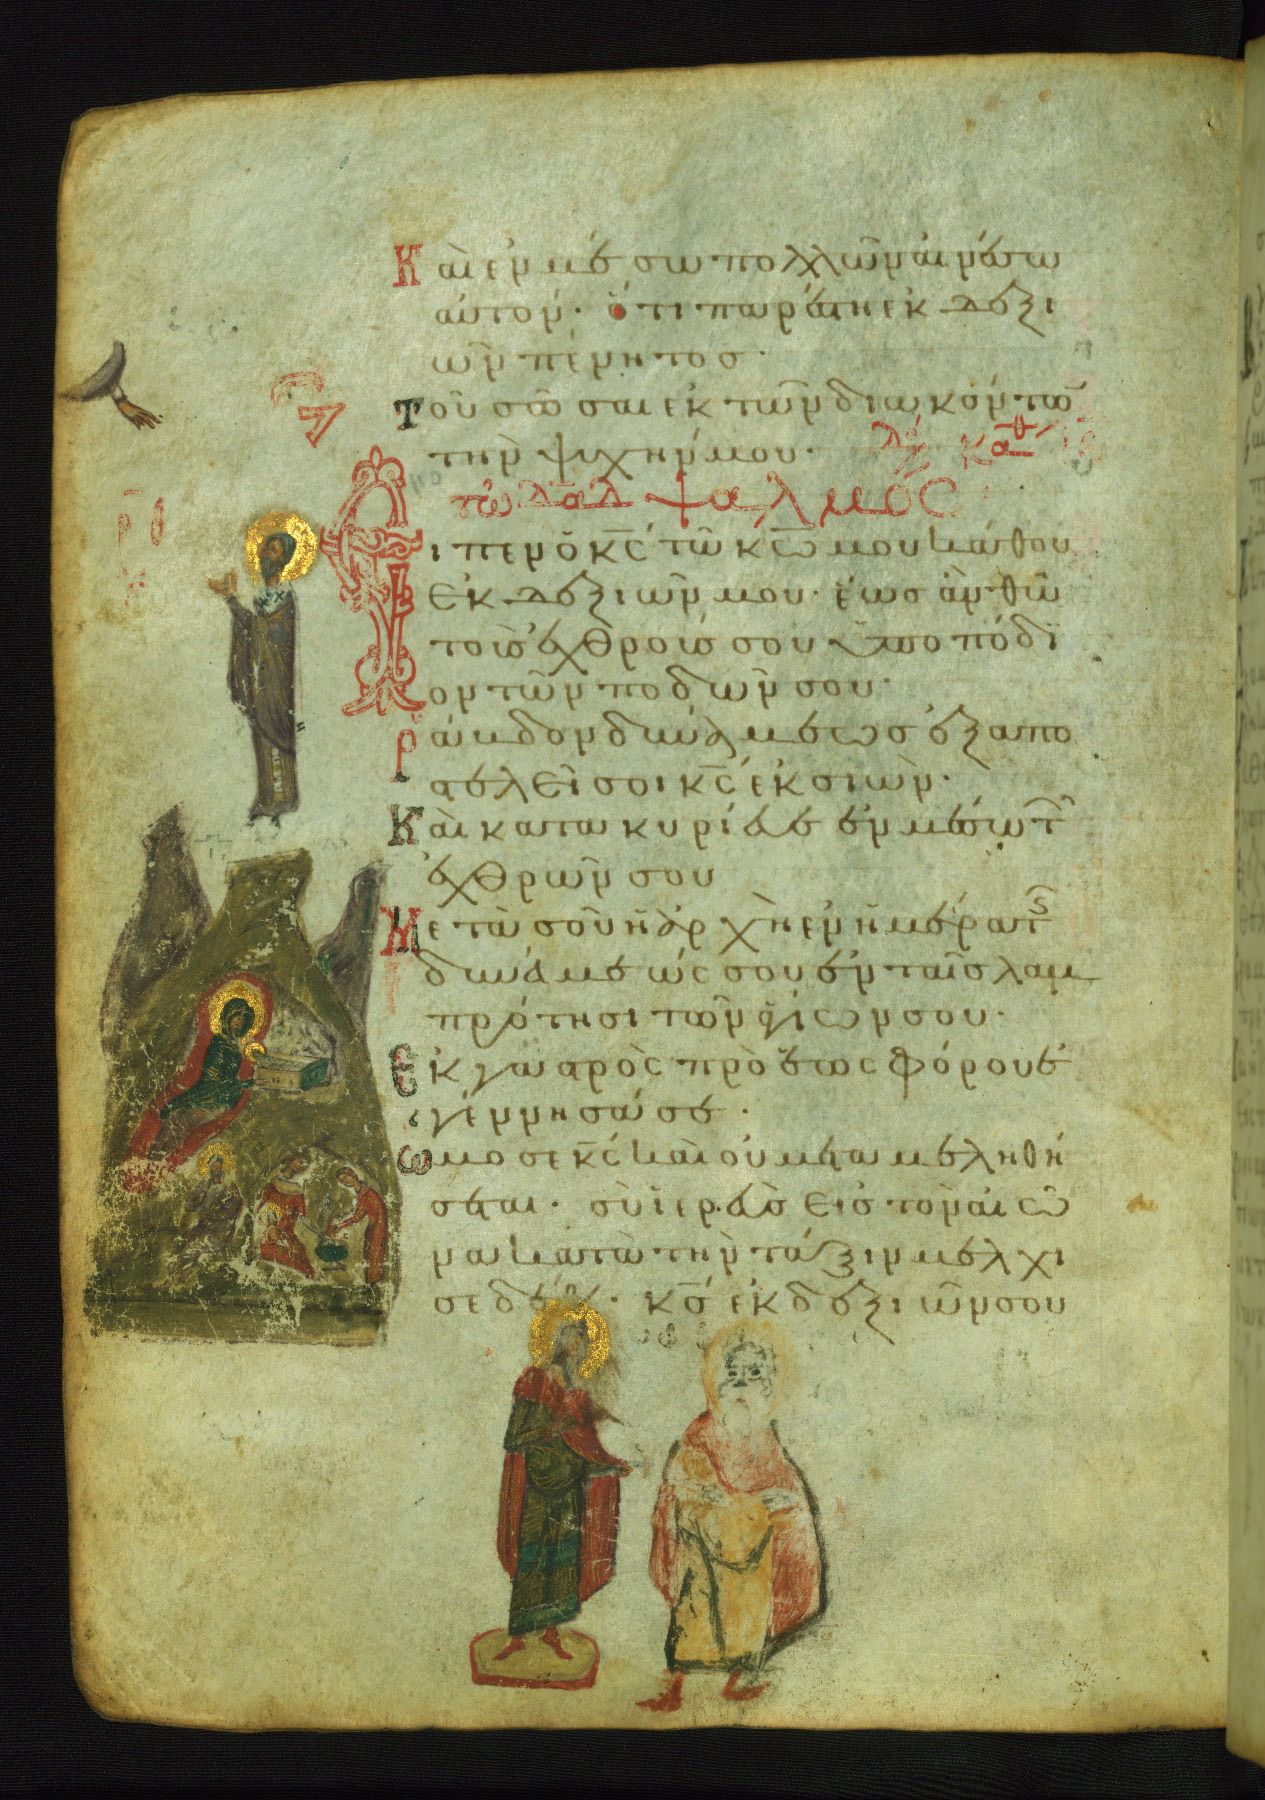 Καὶ ἐν μέσω πολλῶν αἰνέσω
αὐτόν· ὅτι παρέστη ἐκ δεξι
ῶν πένητος·
τοῦ σῶσαι ἐκ τῶν διωκόντω
τὴν ψυχήν μου·
τῶ δαδ ψαλμός
Εἶπεν ὁ κς τῶ κω μου κάθου
ἐκ δεξιῶν μου· ἕως ἂν θῶ
τοὺς ἐχθρούς σου ὑποπόδι
ον τῶν ποδῶν σου·
ῥάβδον δυνάμεως ἐξαπο
στελεῖ σοι κς ἐκ σιών·
Καὶ κατακυρίευε ἐν μέσω τ
ἐχθρῶν σου
Μετὰ σοῦ ἡ ἀρχὴ ἐν ἡμέρα τς
δυνάμεώς σου ἐν ταῖς λαμ
πρότησι τῶν ἁγίων σου·
Ἐκ γαστρὸς πρὸ ἑωσφόρου ἐ
γέννησά σε·
Ὤμοσε κς καὶ οὐ μεταμεληθή
σεται· σὺ ἱερεὺς εἰς τὸν αἰῶ
να κατὰ τὴν τάξιν μελχι
σεδέκ· κς ἐκ δεξιῶν σου